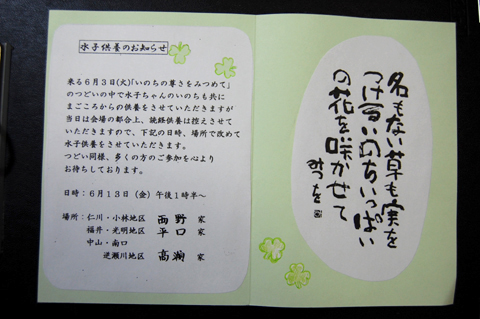 水子供養のお知らせ
来る6月3日(火)「いのちの尊さをみつめて」
のつどいの中で水子ちゃんのいのちも共に
まごころからの供養をさせていただきますが
当日は会場の都合上、読経供養は控えさせて
いただきますので、下記の日時、場所で改めて
水子供養をさせていただきます。
つどい同様、多くの方のご参加を心より
お待ちしております。
日時：6月13日（金）午後1時半～
場所：仁川・小林地区 西野 家
福井・光明地区 平口 家
中山・南口
逆瀬川地区 高瀬 家
名もない草も実を
つけるいのちいっぱい
の花を咲かせて
みつを